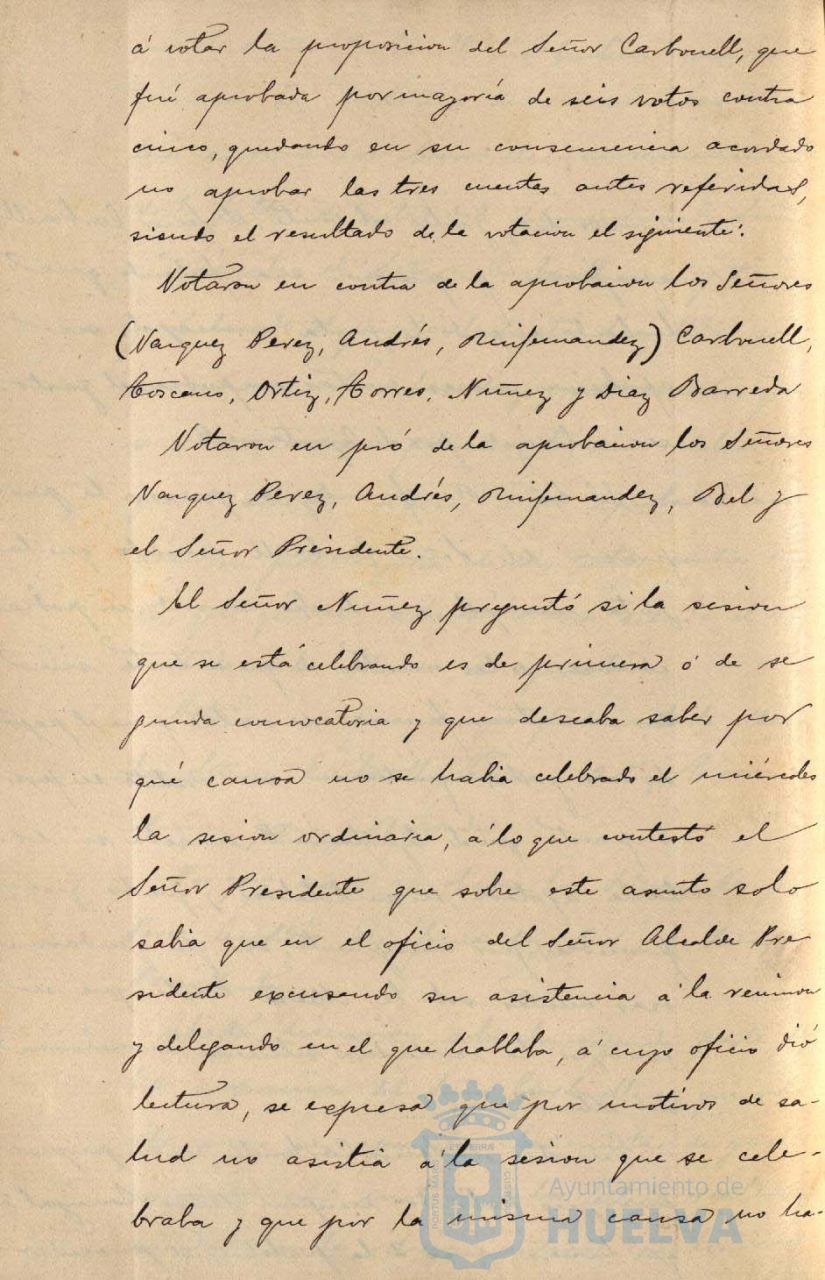 á votar la proposicion del Señor Carbonell, que
fué aprobada por mayoría de seis votos contra
cinco, quedando en su consecuencia acordado
no aprobar las tres cuentas antes referidas,
siendo el resultado de la votacion el siguiente:
Votaron en contra de la aprobacion los Señores
(Vazquez Perez, Andrés, Quifernandez) Carbonell,
Toscano, Ortiz, Torres, Nuñez y Diaz Barreda
Votaron en pró de la aprobacion los Señores
Vazquez Perez, Andrés, Quifernandez, Bel y
el Señor Presidente.
El Señor Nuñez preguntó si la sesion
que se está celebrando es de primera ó de se
gunda convocatoria y que deseaba saber por
qué causa no se habia celebrado el miércoles
la sesion ordinaria, á lo que contestó el
Señor Presidente que sobre este asunto solo
sabia que en el oficio del Señor Alcalde Pre
sidente excusando su asistencia á la reunion
y delegando en el que hablaba, á cuyo oficio dió
lectura, se expresa que por motivos de sa-
lud no asistia á la sesion que se cele-
braba y que por la misma causa no ha-
Ayuntamiento de
HUELVA